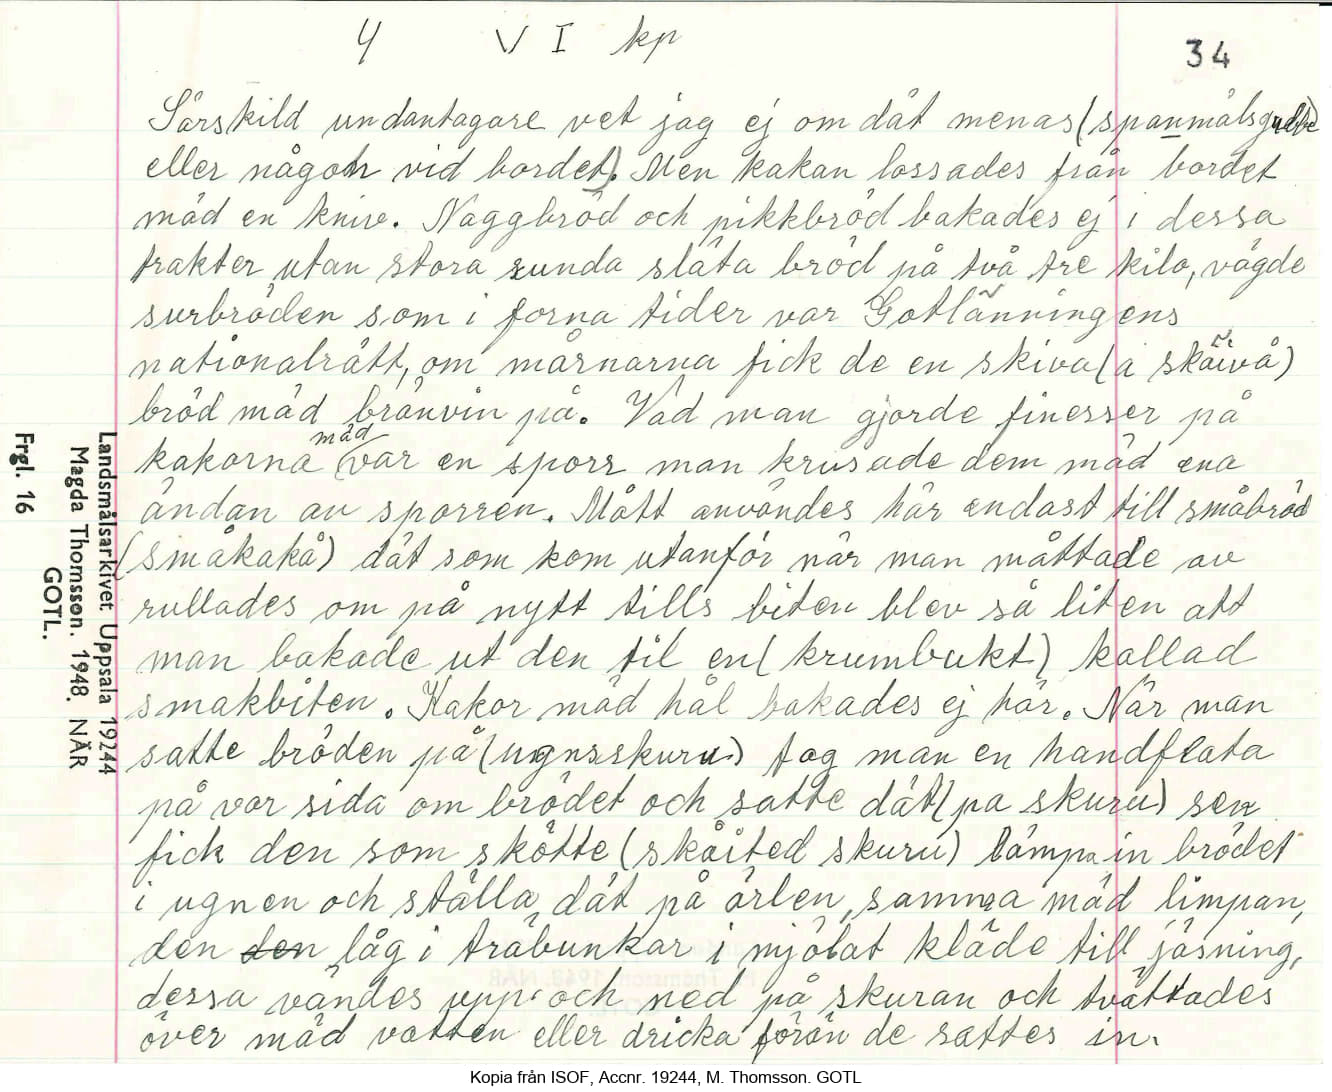 4 VI kp 34
Särskild undantagare vet jag ej om dät menas (spanmålsgubbe
eller någon vid bordet). Men kakan lossades från bordet
mäd en kniv. Naggbröd och pikkbröd bakades ej i dessa
trakter, utan stora runda släta bröd på två tre kilo, vägde
surbröden som i forna tider var Gotlänningens
nationalrätt, om mårnarna fick de en skiva (a skäivå)
bröd mäd bränvin på. Vad man gjorde finesser på
kakorna mäd var en sporr man krusade dem mäd ena
ändan av sporren. Mått användes här endast till småbröd
(småkakå) dät som kom utanför när man måttade av
rullades om på nytt tills biten blev så liten att
man bakade ut den til en (krumbukt) kallad
smakbiten. Kakor mäd hål bakades ej här. När man
satte bröden på (ugnsskuru) tog man en handflata
på var sida om brödet och satte dät (pa skuru) sen
fick den som skötte (skåited skuru) lämpa in brödet
i ugnen och ställa dät på ärlen, samma mäd limpan,
den den låg i träbunkar i mjölat kläde till jäsning,
dessa vändes upp och ned på skuran och tvättades
över mäd vatten eller dricka förän de sattes in.
Landsmålsarkivet Uppsala 19244
Magda Thomsson. 1948. NÄR
GOTL.
Frgl. 16
Kopia från ISOF, Accnr. 19244, M. Thomsson. GOTL